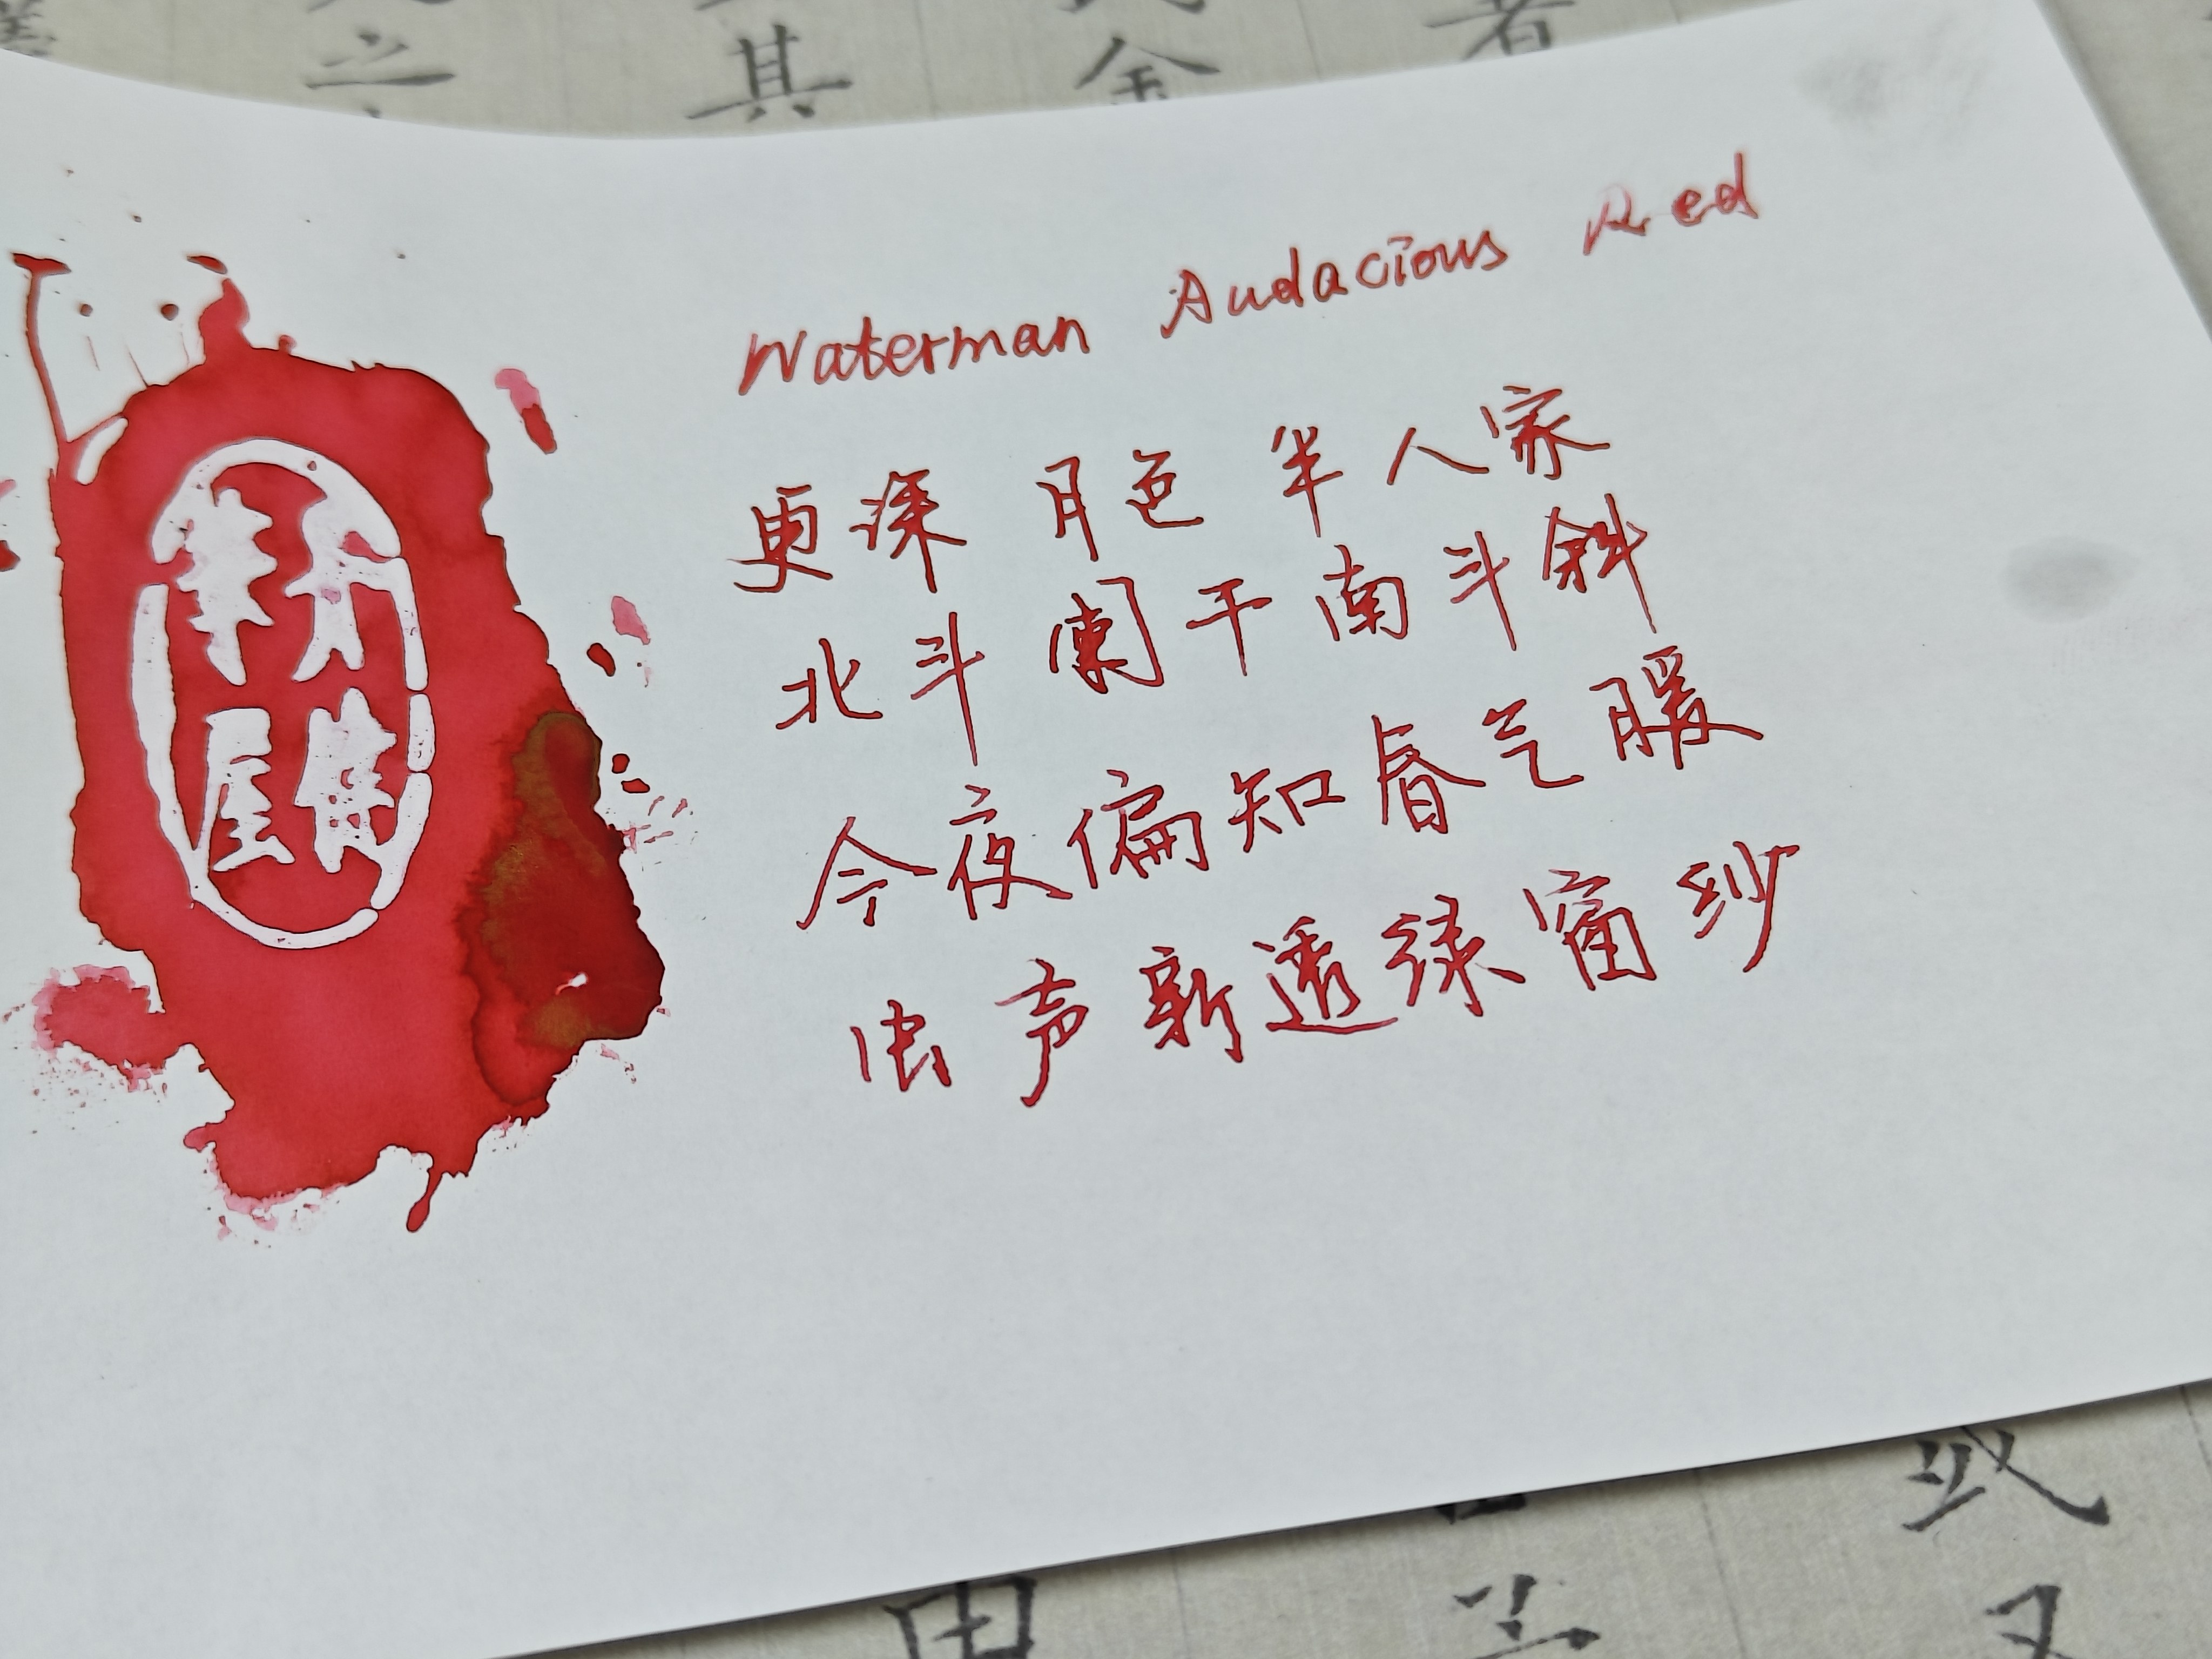 Waterman Audacious Red
更深月色半人家
北斗阑干南斗斜
今夜偏知春气暖
虫声新透绿窗纱
之 其 金 者
或